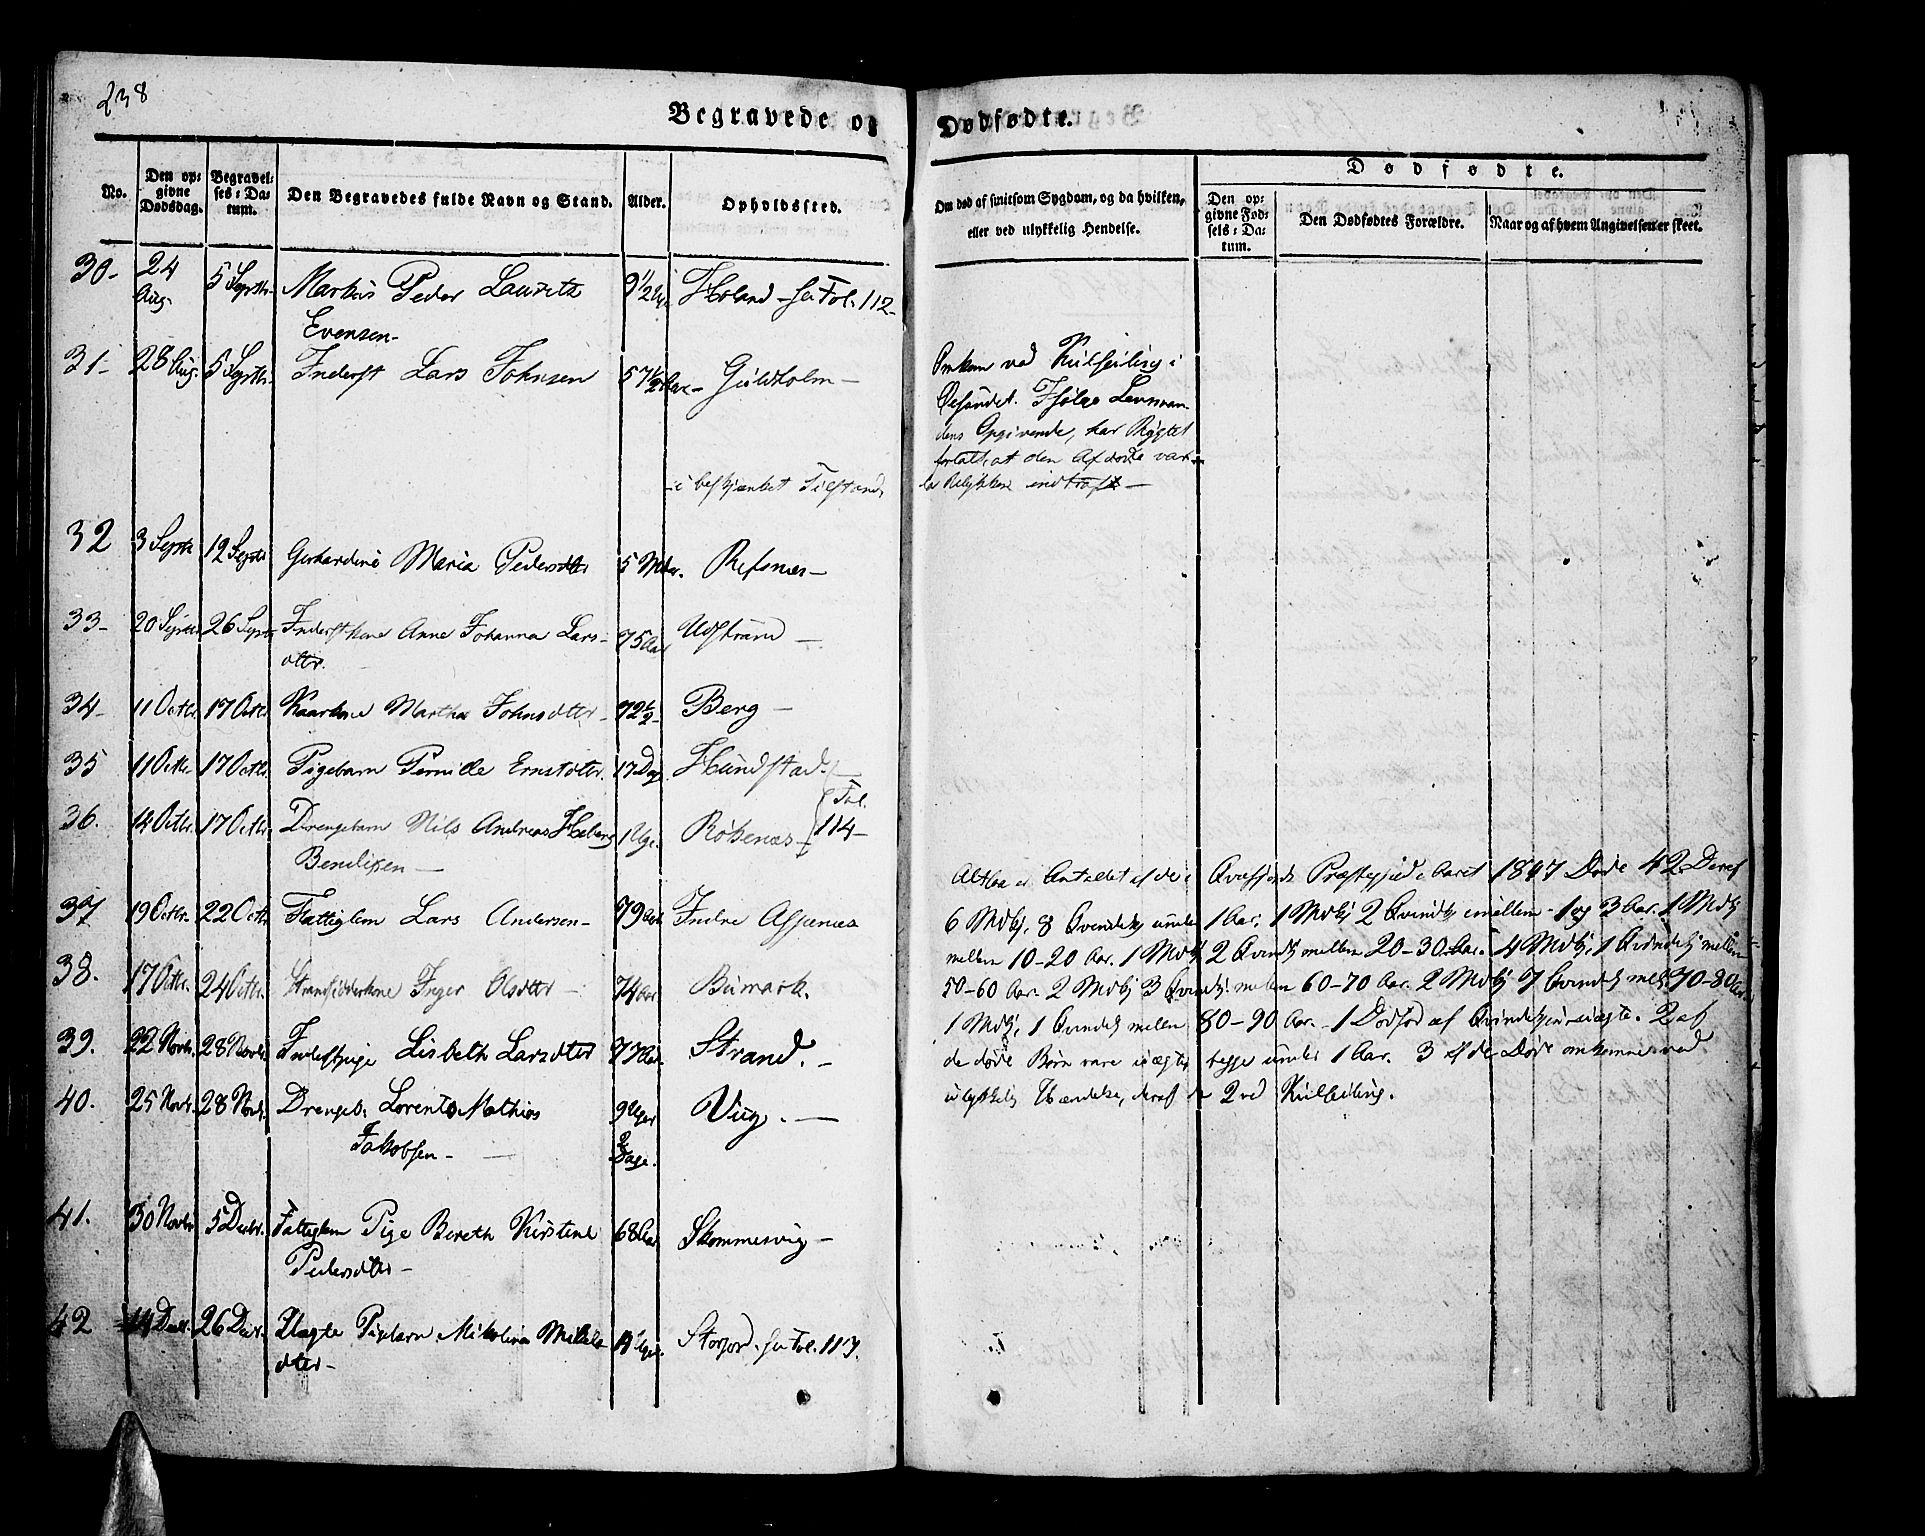 238
Begravede og Dødfødte.
No.
Den opgivne Dødsdag.
Begravelses-Datum.
Den Begravedes fulde Navn og Stand.
Alder.
Opholdssted.
Om død af smitsom Sygdom, og da hvilken, eller ved ulykkelig Hendelse.
Dødfødte.
Den opgivne Fødsels-Datum.
Den Dødfødtes Forældre.
Naar og af hvem Angivelsen er skeet.
30- 24 Aug- 5 Septr- Markus Peder Lauritz 9 1/2 Uge Holand - see Fol. 112-
Evensen-
31- 28 Aug. 5 Septr. Inderst Lars Johnsen 57 1/2 Aar- Guldholm-
Omkom ved Kulseiling i
Øesundet. Ifølge Lensman-
dens Opgivende, har Rygtet
fortalt, at den Afdøde var
-i beskjænket Tilstand,
da Ulykken indtraf-
32 3 Septr 12 Septr Gerhardine Maria Pedersdtter 5 Mdr. Refsnæs-
33- 20 Septr 26 Septr Inderstkone Anne Johanna Lars- 75 Aar
dttr.
34- 11 Octbr. 17 Octbr. Kaarkone Martha Johnsdtter- 72 1/2- Berg-
35 11 Octbr- 17 Octbr. Pigebarn Pernille Ernstdtter. 17 Dage Hundstad-
36. 14 Octbr. 17 Octbr. Drengebarn Nils Andreas Heberg 1 Uge. Röksenæs- Fol. 114-
Bendixen-
37 19 Octbr. 22 Octbr. Fattiglem Lars Andersen- 79 Aar Indre
38. 17 Octbr. 24 Octbr. Strandsidderkone Inger Olsdtter- 74 Aar Bumark.
39. 22 Novbr. 28 Novbr. Inderstpige Lisbeth Larsdtter 77 Aar. Strand.-
40. 25 Novbr. 28 Novbr. Drengeb. Lorents Mathias 9 Uger 2 Dage. Vug.-
Jakobsen-
41. 30 Novbr 5 Decbr. Fattiglem Pige Bereth Kirstine 68 Aar Skommesvig-
Pedersdtter-
42 14 Decbr. 26 Decbr. Uægte Pigebarn Nikolina Mikkels- Uger. Storjord. see Fol. 117.
dtter-
Altsaa er Antallet af de i Qvæfjords Præstegjeld i Aaret 1847 Døde 42 Deraf
6 Mdkj. 8 Qvindekj under 1 Aar. 1 Mdkj 2 Qvindkj imellem 1 og 3 Aar. 1 Mdkj
mellem 10-20 Aar. 1 Mdkj 2 Qvindkj mellem 20-30 Aar. 4 Mdkj. 1 Qvindekj mellem
50-60 Aar. 2 Mdkj 3 Qvindekj. mellem 60-70 Aar. 2 Mdkj 7 Qvindekj mell. 70-80 Aar.
1 Mdkj. 1 Qvindekj mellem 80-90 Aar.- 1 Dødfød af Qvindekjøn uægte. 2 af
de døde Børn vare uægte, begge under 1 Aar. 3 af de Døde omkomne ved
ulykkelig Hændelse, deraf de 2 ved Kulseiling.